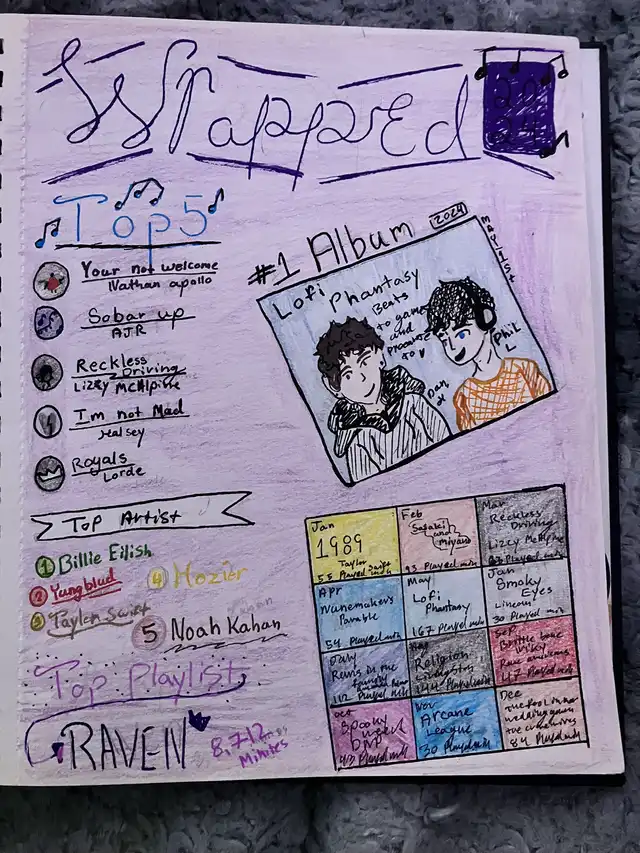 Wrapped
20
24
Top 5
Your not welcome
Nathan apollo
Sobar up
AJR
Reckless
Driving
Lizzy McAlpine
I'm not Mad
Halsey
Royals
Lorde
#1 Album
2024
May 31st
Lofi Phantasy
Beats
to game
and
to
Dan
Phil
Top Artist
1 Billie Eilish
2 Yungblud
3 Taylor Swift
4 Hozier
5 Noah Kahan
Top Playlist
RAVEN
8,712
Minutes
Jan
1989
Taylor Swift
55 Played min
Feb
Sasaki
and
miyano
93 Played min
Mar
Reckless
Driving
Lizzy McAlpine
Played min
Apr
Wunemakers
Parable
54 Played min
May
Lofi
Phantasy
167 Played min
Jan
Smoky
Eyes
Lincoln
30 Played min
Ruins
the
Played min
Religion
Livingston
Played min
Sep
Played min
Oct
Spooky
Played min
Nov
Arcane
League
30 Played min
Dec
wedding
84 Played min